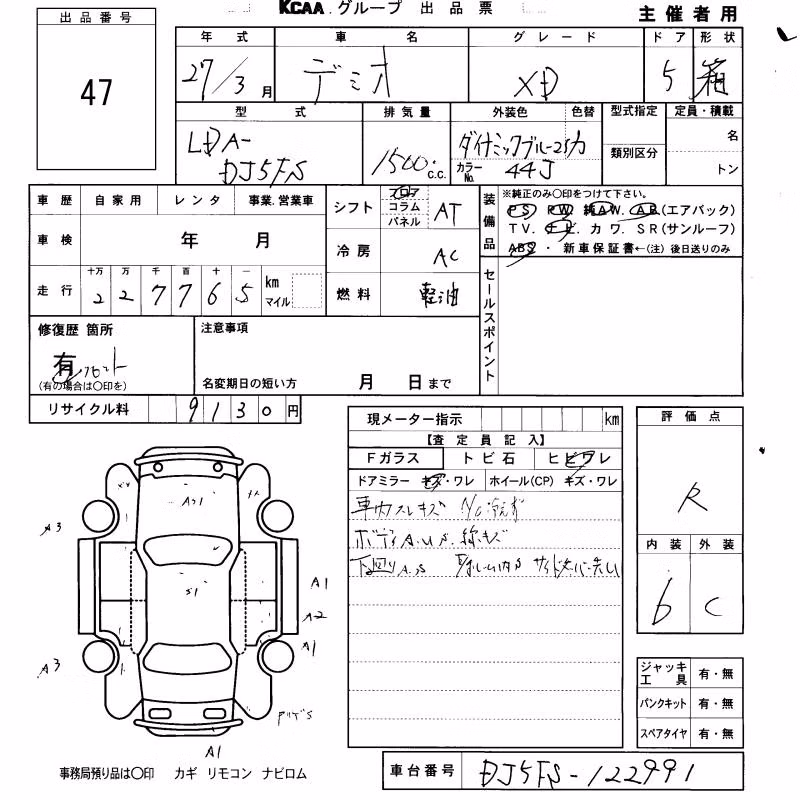 KCAA.グループ 出品票
主催者用
出品番号
47
年式 車名 グレード ドア 形状
27/3月 デミオ XD 5 箱
型式 排気量 外装色 色替 型式指定 定員・積載
LDA-
DJ5FS
1500 c.c.
ダイナミックブルー
カラーNo. 44J
類別区分
名
トン
車歴 自家用 レンタ 事業.営業車
車検 年 月
十万 万 千 百 十 一
走行 2 2 7 7 6 5 km マイル
シフト フロア コラム パネル AT
冷房 AC
燃料 軽油
装備品
※純正のみ○印をつけて下さい。
PS PW. 純AW. AB.(エアバック)
TV. ナビ. カワ. SR(サンルーフ)
ABS・新車保証書←(注)後日送りのみ
セールスポイント
修復歴 箇所
有
(有の場合は○印を)
注意事項
名変期日の短い方 月 日まで
リサイクル料 9130円
現メーター指示 km
【査定員記入】
Fガラス トビ石 ヒビワレ
ドアミラー キズ・ワレ ホイール(CP) キズ・ワレ
車内スレキズ
ボディA.U.S.線キズ
下回りA.S
評価点
R
内装 外装
6 C
ジャッキ工具 有・無
パンクキット 有・無
スペアタイヤ 有・無
A3
A1
S1
A1
A2
A1
A3
A1
事務局預り品は○印 カギ リモコン ナビロム
車台番号 DJ5FS-122991